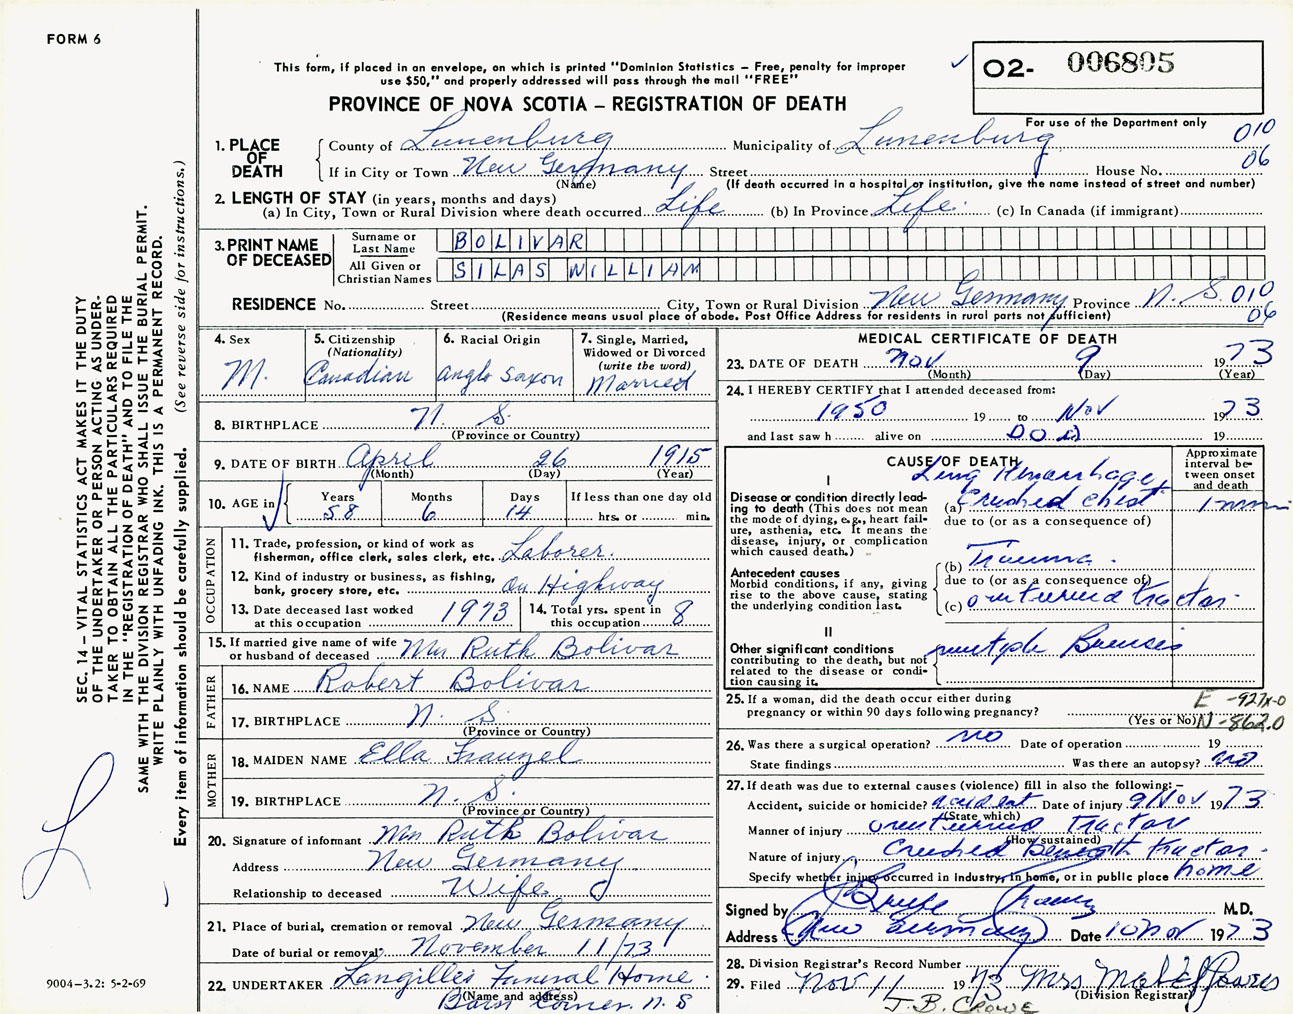 FORM 6
This form, if placed in an envelope, on which is printed "Dominion Statistics – Free, penalty for improper
use $50," and properly addressed will pass through the mail "FREE"
O2- 006805
PROVINCE OF NOVA SCOTIA – REGISTRATION OF DEATH
For use of the Department only
010
06
1. PLACE OF DEATH
County of Lunenburg Municipality of Lunenburg
If in City or Town New Germany Street House No.
(Name) (If death occurred in a hospital or institution, give the name instead of street and number)
2. LENGTH OF STAY (in years, months and days)
(a) In City, Town or Rural Division where death occurred Life (b) In Province Life. (c) In Canada (if immigrant)
3. PRINT NAME OF DECEASED
Surname or Last Name BOLIVAR
All Given or Christian Names SILAS WILLIAM
RESIDENCE No. Street City, Town or Rural Division New Germany Province N. S. 010
(Residence means usual place of abode. Post Office Address for residents in rural parts not sufficient) 06
4. Sex
M.
5. Citizenship
(Nationality)
Canadian
6. Racial Origin
Anglo Saxon
7. Single, Married,
Widowed or Divorced
(write the word)
Married
8. BIRTHPLACE N. S.
(Province or Country)
9. DATE OF BIRTH April 26 1915
(Month) (Day) (Year)
10. AGE in
Years Months Days If less than one day old
58 6 14 hrs. or min.
OCCUPATION
11. Trade, profession, or kind of work as
fisherman, office clerk, sales clerk, etc. Laborer.
12. Kind of industry or business, as fishing,
bank, grocery store, etc. On Highway
13. Date deceased last worked
at this occupation 1973
14. Total yrs. spent in
this occupation 8
15. If married give name of wife
or husband of deceased Mrs Ruth Bolivar
FATHER
16. NAME Robert Bolivar
17. BIRTHPLACE N. S.
(Province or Country)
MOTHER
18. MAIDEN NAME Ella
19. BIRTHPLACE N. S.
(Province or Country)
20. Signature of informant Mrs Ruth Bolivar
Address New Germany
Relationship to deceased Wife
21. Place of burial, cremation or removal New Germany
Date of burial or removal November 11/73
22. UNDERTAKER Langilles Funeral Home.
(Name and address)
Barss Corner. N. S
MEDICAL CERTIFICATE OF DEATH
23. DATE OF DEATH Nov 9 1973
(Month) (Day) (Year)
24. I HEREBY CERTIFY that I attended deceased from:
1950 19 to Nov 1973
and last saw h alive on D O D 19
CAUSE OF DEATH
Approximate
interval be-
tween onset
and death
I
Disease or condition directly lead-
ing to death (This does not mean
the mode of dying, e.g., heart fail-
ure, asthenia, etc. It means the
disease, injury, or complication
which caused death.)
Lung Hemorrhage,
(a) Crushed chest 1 min
due to (or as a consequence of)
Antecedent causes
Morbid conditions, if any, giving
rise to the above cause, stating
the underlying condition last.
(b) Trauma.
due to (or as a consequence of)
(c) overturned tractor.
II
Other significant conditions
contributing to the death, but not
related to the disease or condi-
tion causing it.
multiple Bruises
25. If a woman, did the death occur either during
pregnancy or within 90 days following pregnancy?
(Yes or No)
N-862.0
26. Was there a surgical operation? no Date of operation 19
State findings Was there an autopsy? no
27. If death was due to external causes (violence) fill in also the following:–
Accident, suicide or homicide? accident Date of injury 9 Nov 1973
(State which)
Manner of injury overturned tractor
(How sustained)
Nature of injury Crushed beneath tractor.
Specify whether injury occurred in industry, in home, or in public place home
Signed by M.D.
Address New Germany Date 10 Nov 1973
28. Division Registrar's Record Number
29. Filed Nov 11 1973 Mrs Mabel
(Division Registrar)
J. B. CROWE
SEC. 14 – VITAL STATISTICS ACT MAKES IT THE DUTY
OF THE UNDERTAKER OR PERSON ACTING AS UNDER-
TAKER TO OBTAIN ALL THE PARTICULARS REQUIRED
IN THE "REGISTRATION OF DEATH" AND TO FILE THE
SAME WITH THE DIVISION REGISTRAR WHO SHALL ISSUE THE BURIAL PERMIT.
WRITE PLAINLY WITH UNFADING INK. THIS IS A PERMANENT RECORD.
Every item of information should be carefully supplied. (See reverse side for instructions.)
9004–3.2: 5-2-69